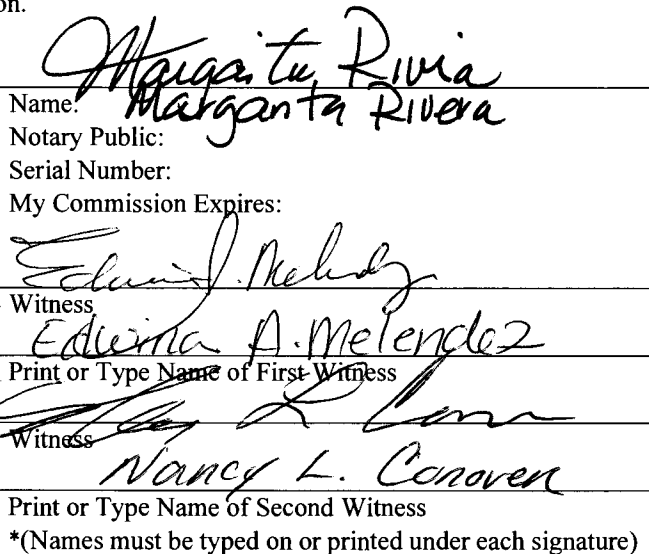 on.
Margarita Rivera
Name: Margarita Rivera
Notary Public:
Serial Number:
My Commission Expires:
Witness
Edwina A. Melendez
Print or Type Name of First Witness
Witness
Nancy L. Conover
Print or Type Name of Second Witness
*(Names must be typed on or printed under each signature)